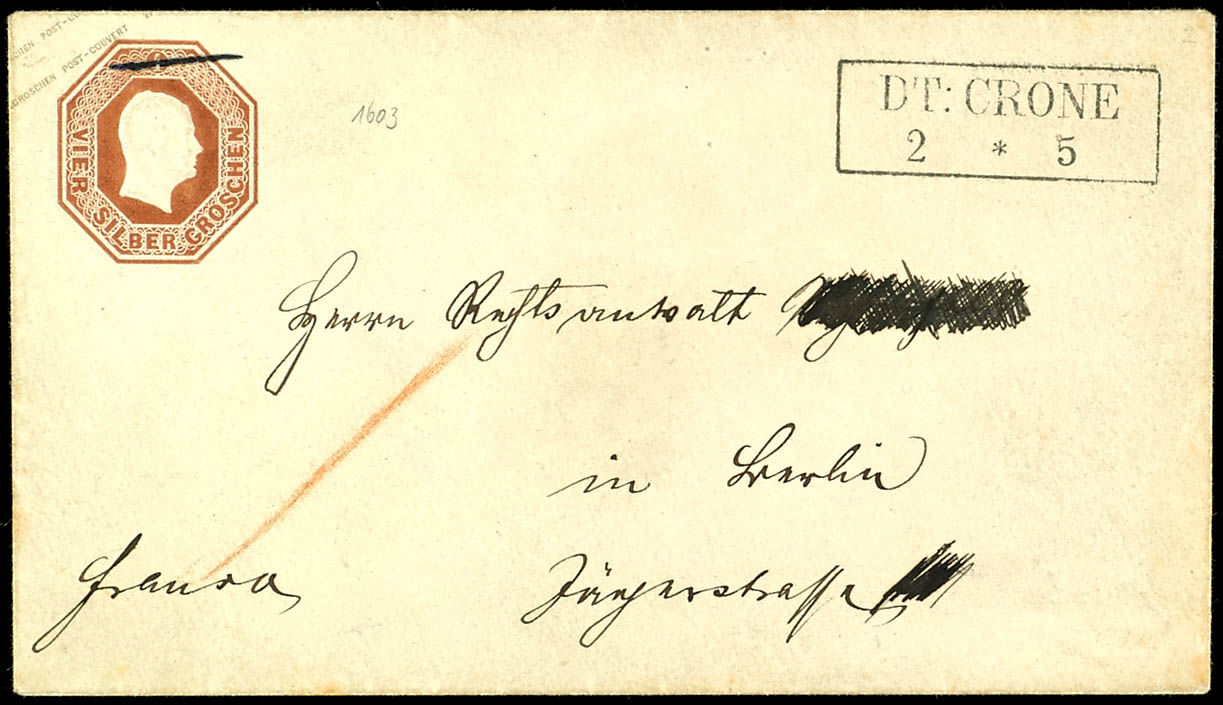 SCHEN POST-CO
GROSCHEN POST-COUVERT
VIER SILBER GROSCHEN
1603
DT: CRONE
2 * 5
Herrn Rechtsanwalt
in Berlin
franco
Jägerstrasse